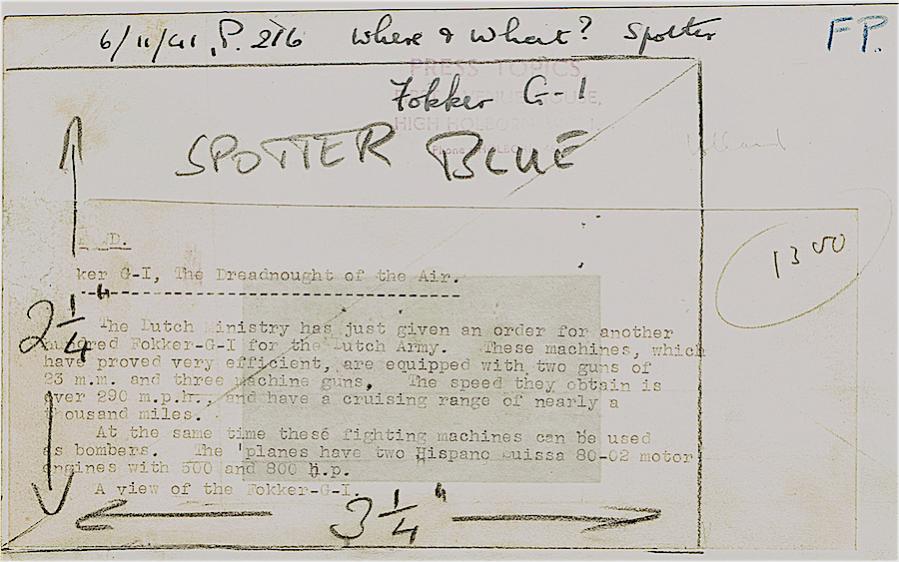 6/11/41, P. 216 Where & What? Spotter
FP.
PRESS TOPICS
Fokker G-1
HOUSE,
HIGH HOLBORN
SPOTTER BLUE
D.
1300
ker G-I, The Dreadnought of the Air.
2 1/4"
The Dutch Ministry has just given an order for another
hundred Fokker-G-I for the Dutch Army. These machines, which
have proved very efficient, are equipped with two guns of
23 m.m. and three machine guns. The speed they obtain is
over 290 m.p.h., and have a cruising range of nearly a
thousand miles.
At the same time these fighting machines can be used
as bombers. The 'planes have two Hispano Suissa 80-02 motor
engines with 500 and 800 h.p.
A view of the Fokker-G-I.
3 1/4"